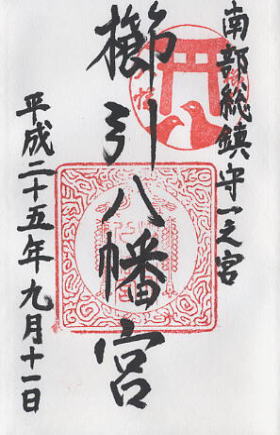 南部総鎮守一之宮
櫛引八幡宮
平成二十五年九月十一日